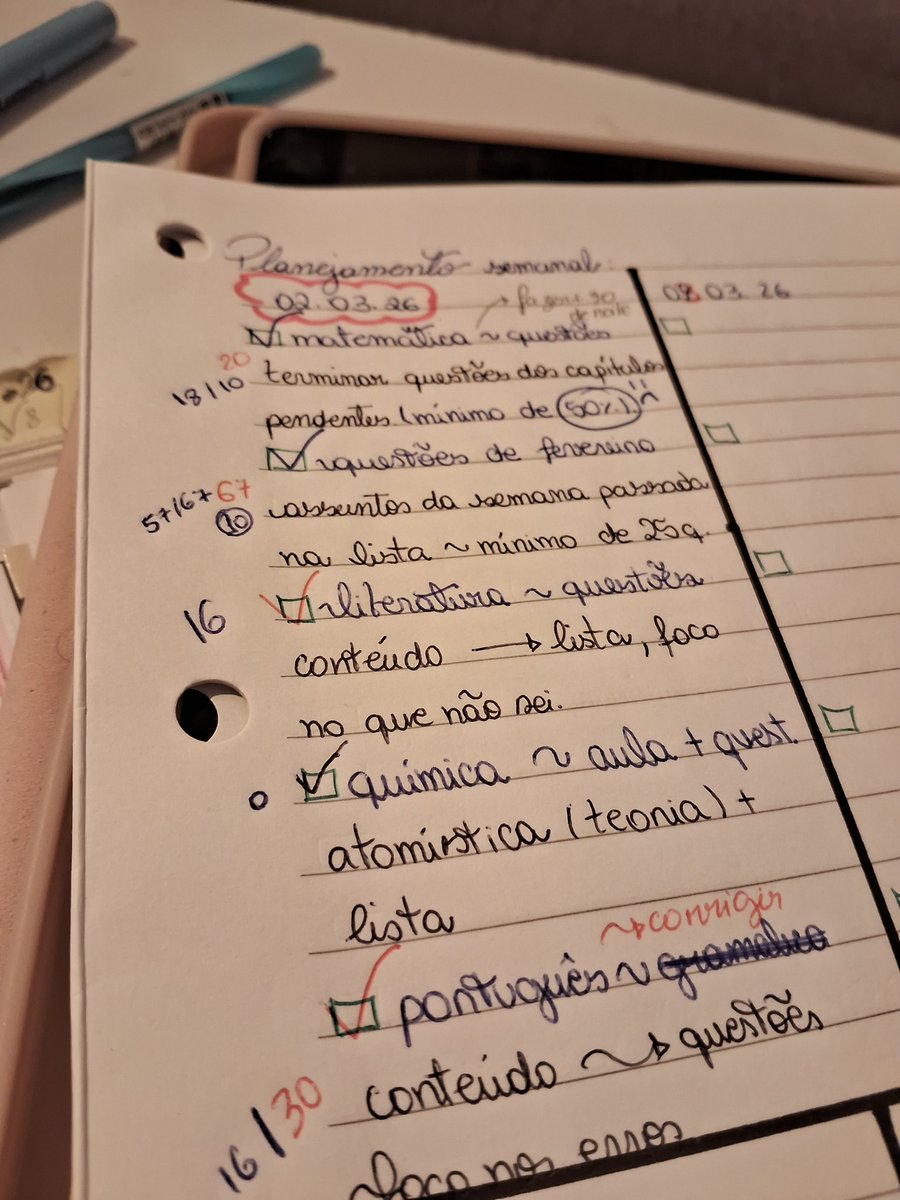 Planejamento semanal:
02.03.26
→ fazer + 30
de noite
matemática ~ questões
20
18/10
terminar questões dos capítulos
pendentes (mínimo de 50%) ::(
questões de fevereiro
57/67 67
10
assuntos da semana passada
na lista ~ mínimo de 25q.
literatura ~ questões
16
contéudo → lista, foco
no que não sei.
0
química ~ aula + quest.
atomística (teoria) +
lista
~> corrigir
português ~
conteúdo ~> questões
16/30
foco nos erros
03.03.26